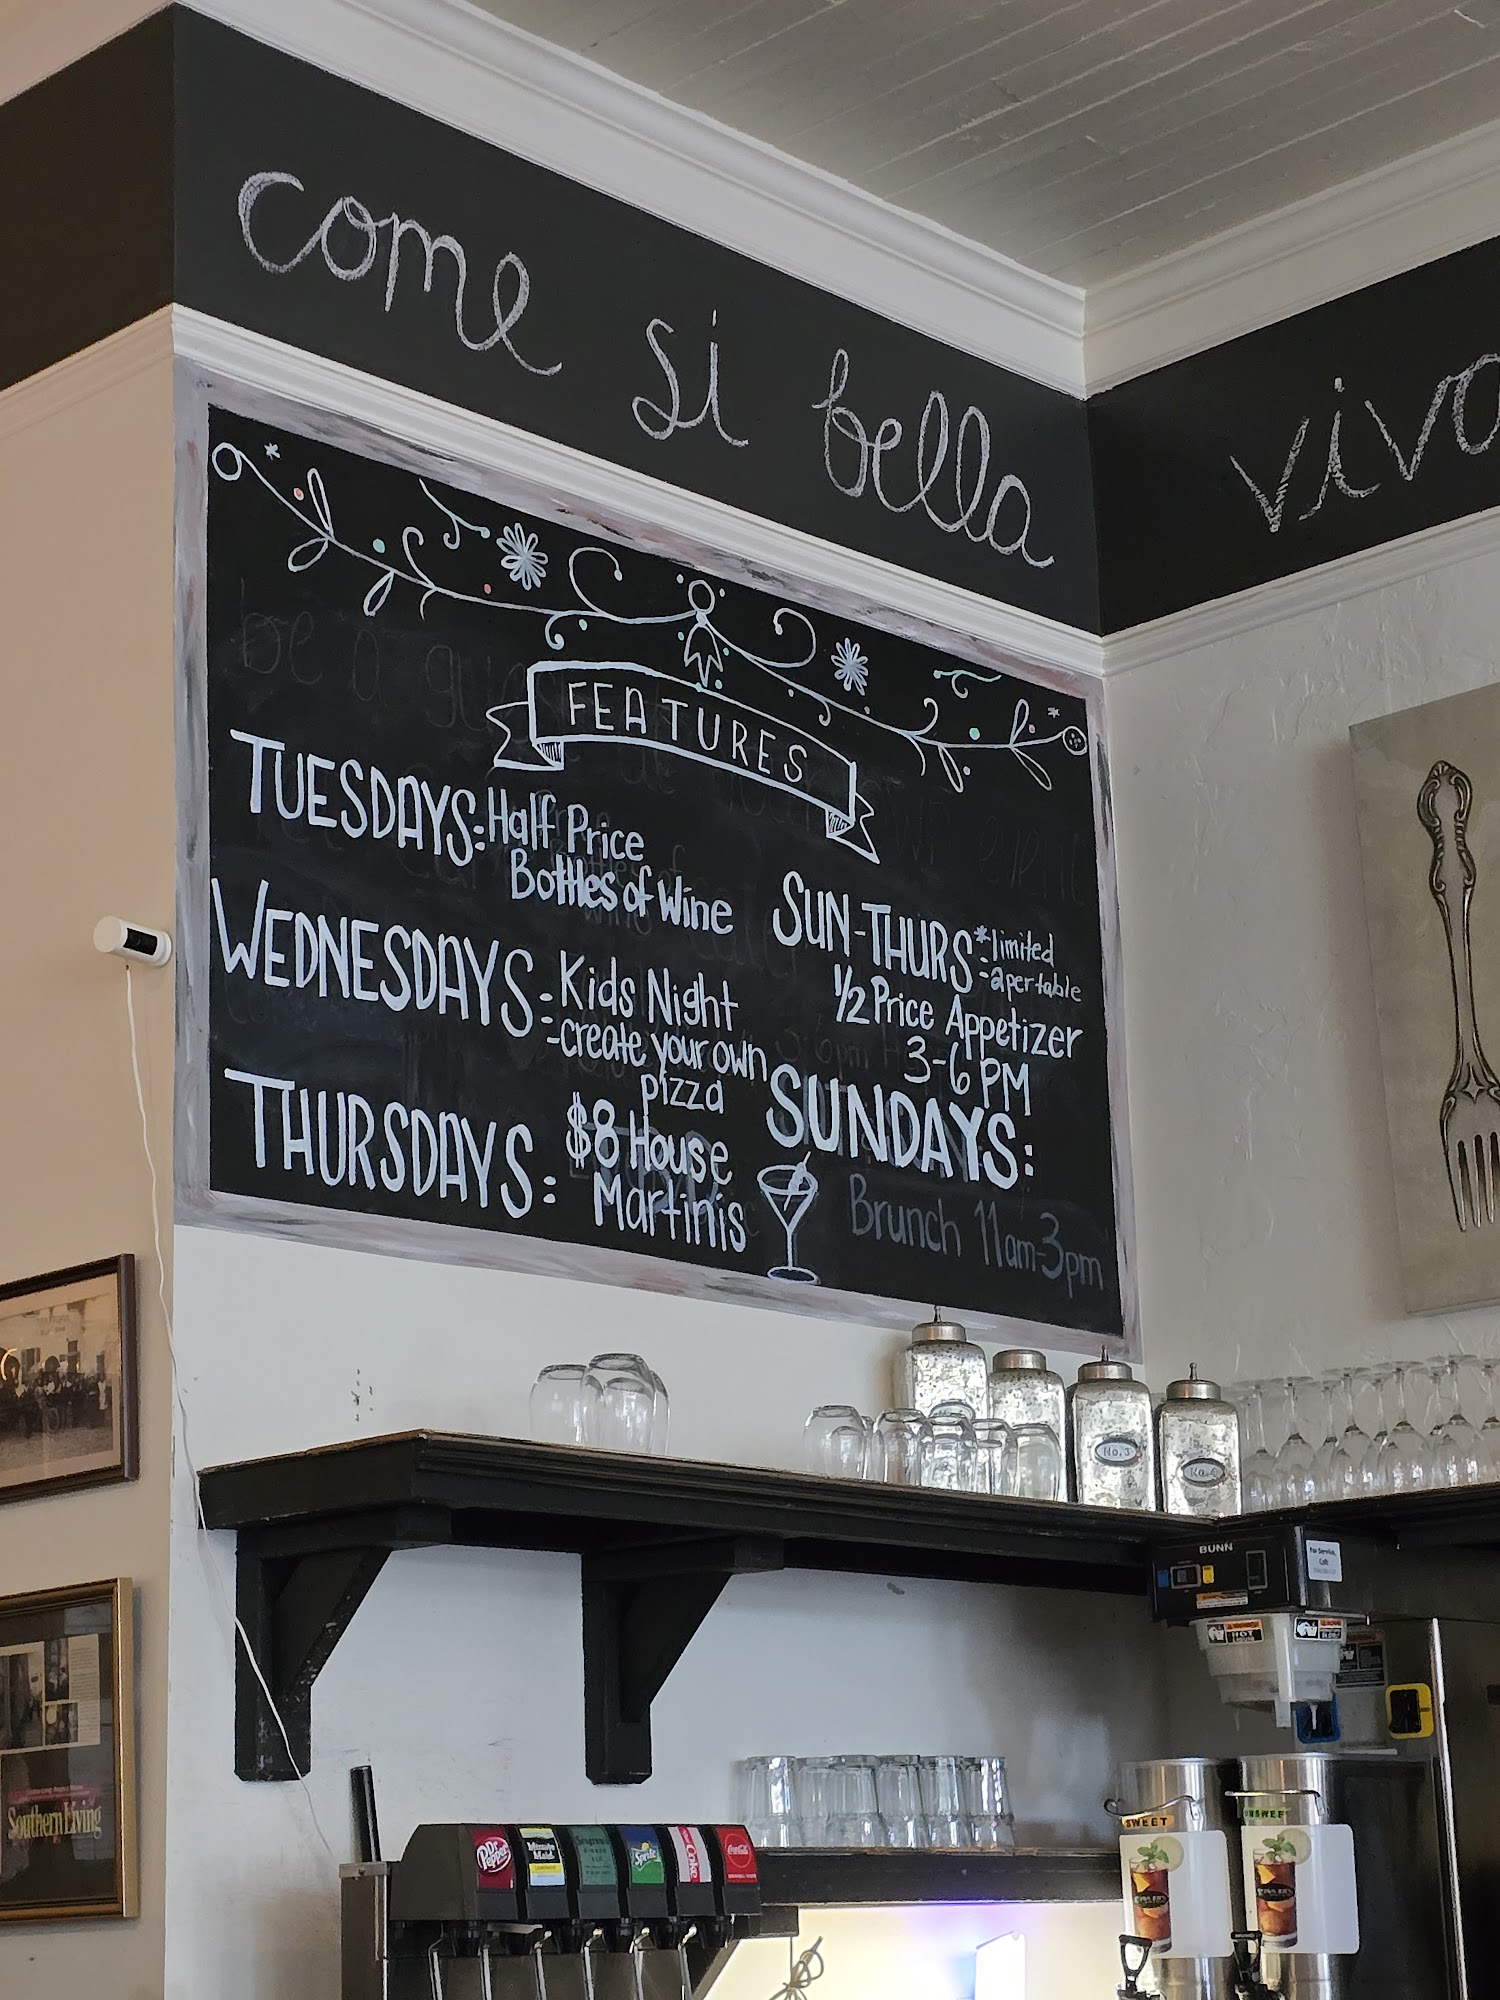 come si bella
FEATURES
TUESDAYS: Half Price
Bottles of Wine
WEDNESDAYS: Kids Night
-create your own
pizza
THURSDAYS: $8 House
Martinis
SUN-THURS: *limited
-apertable
1/2 Price Appetizer
3-6 PM
SUNDAYS:
Brunch 11am-3pm
No. 3
BUNN
For Service,
Call:
HOT
Southern Living
Dr Pepper
Minute Maid
Seagram's
Sprite
Coke
Coca-Cola
SWEET
UNSWEET